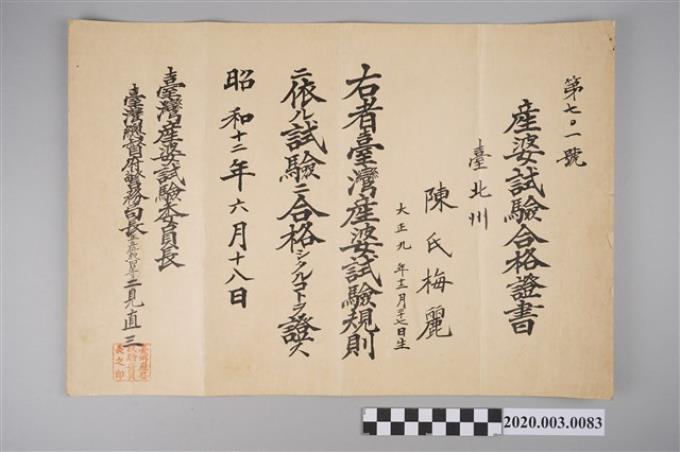 第七〇一號
産婆試驗合格證書
臺北州
陳氏梅麗
大正九年十二月十七日生
右者臺灣産婆試驗規則
ニ依ル試驗ニ合格シタルコトヲ證ス
昭和十二年六月十八日
臺灣産婆試驗委員長
臺灣總督府警務局長 二見直三
2020.003.0083